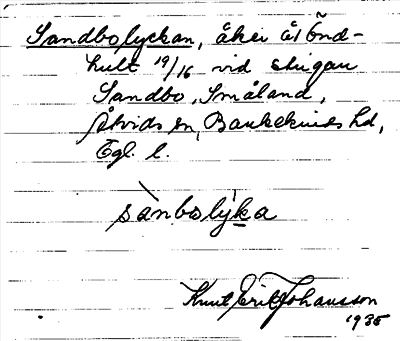 Sandbolyckan, åker åt Önd-
hult 19/16 vid stugan
Sandbo, Småland,
Åtvids sn, Bankekinds hd,
Ögl. l.
sànbolýka
Knut Erik Johansson
1935